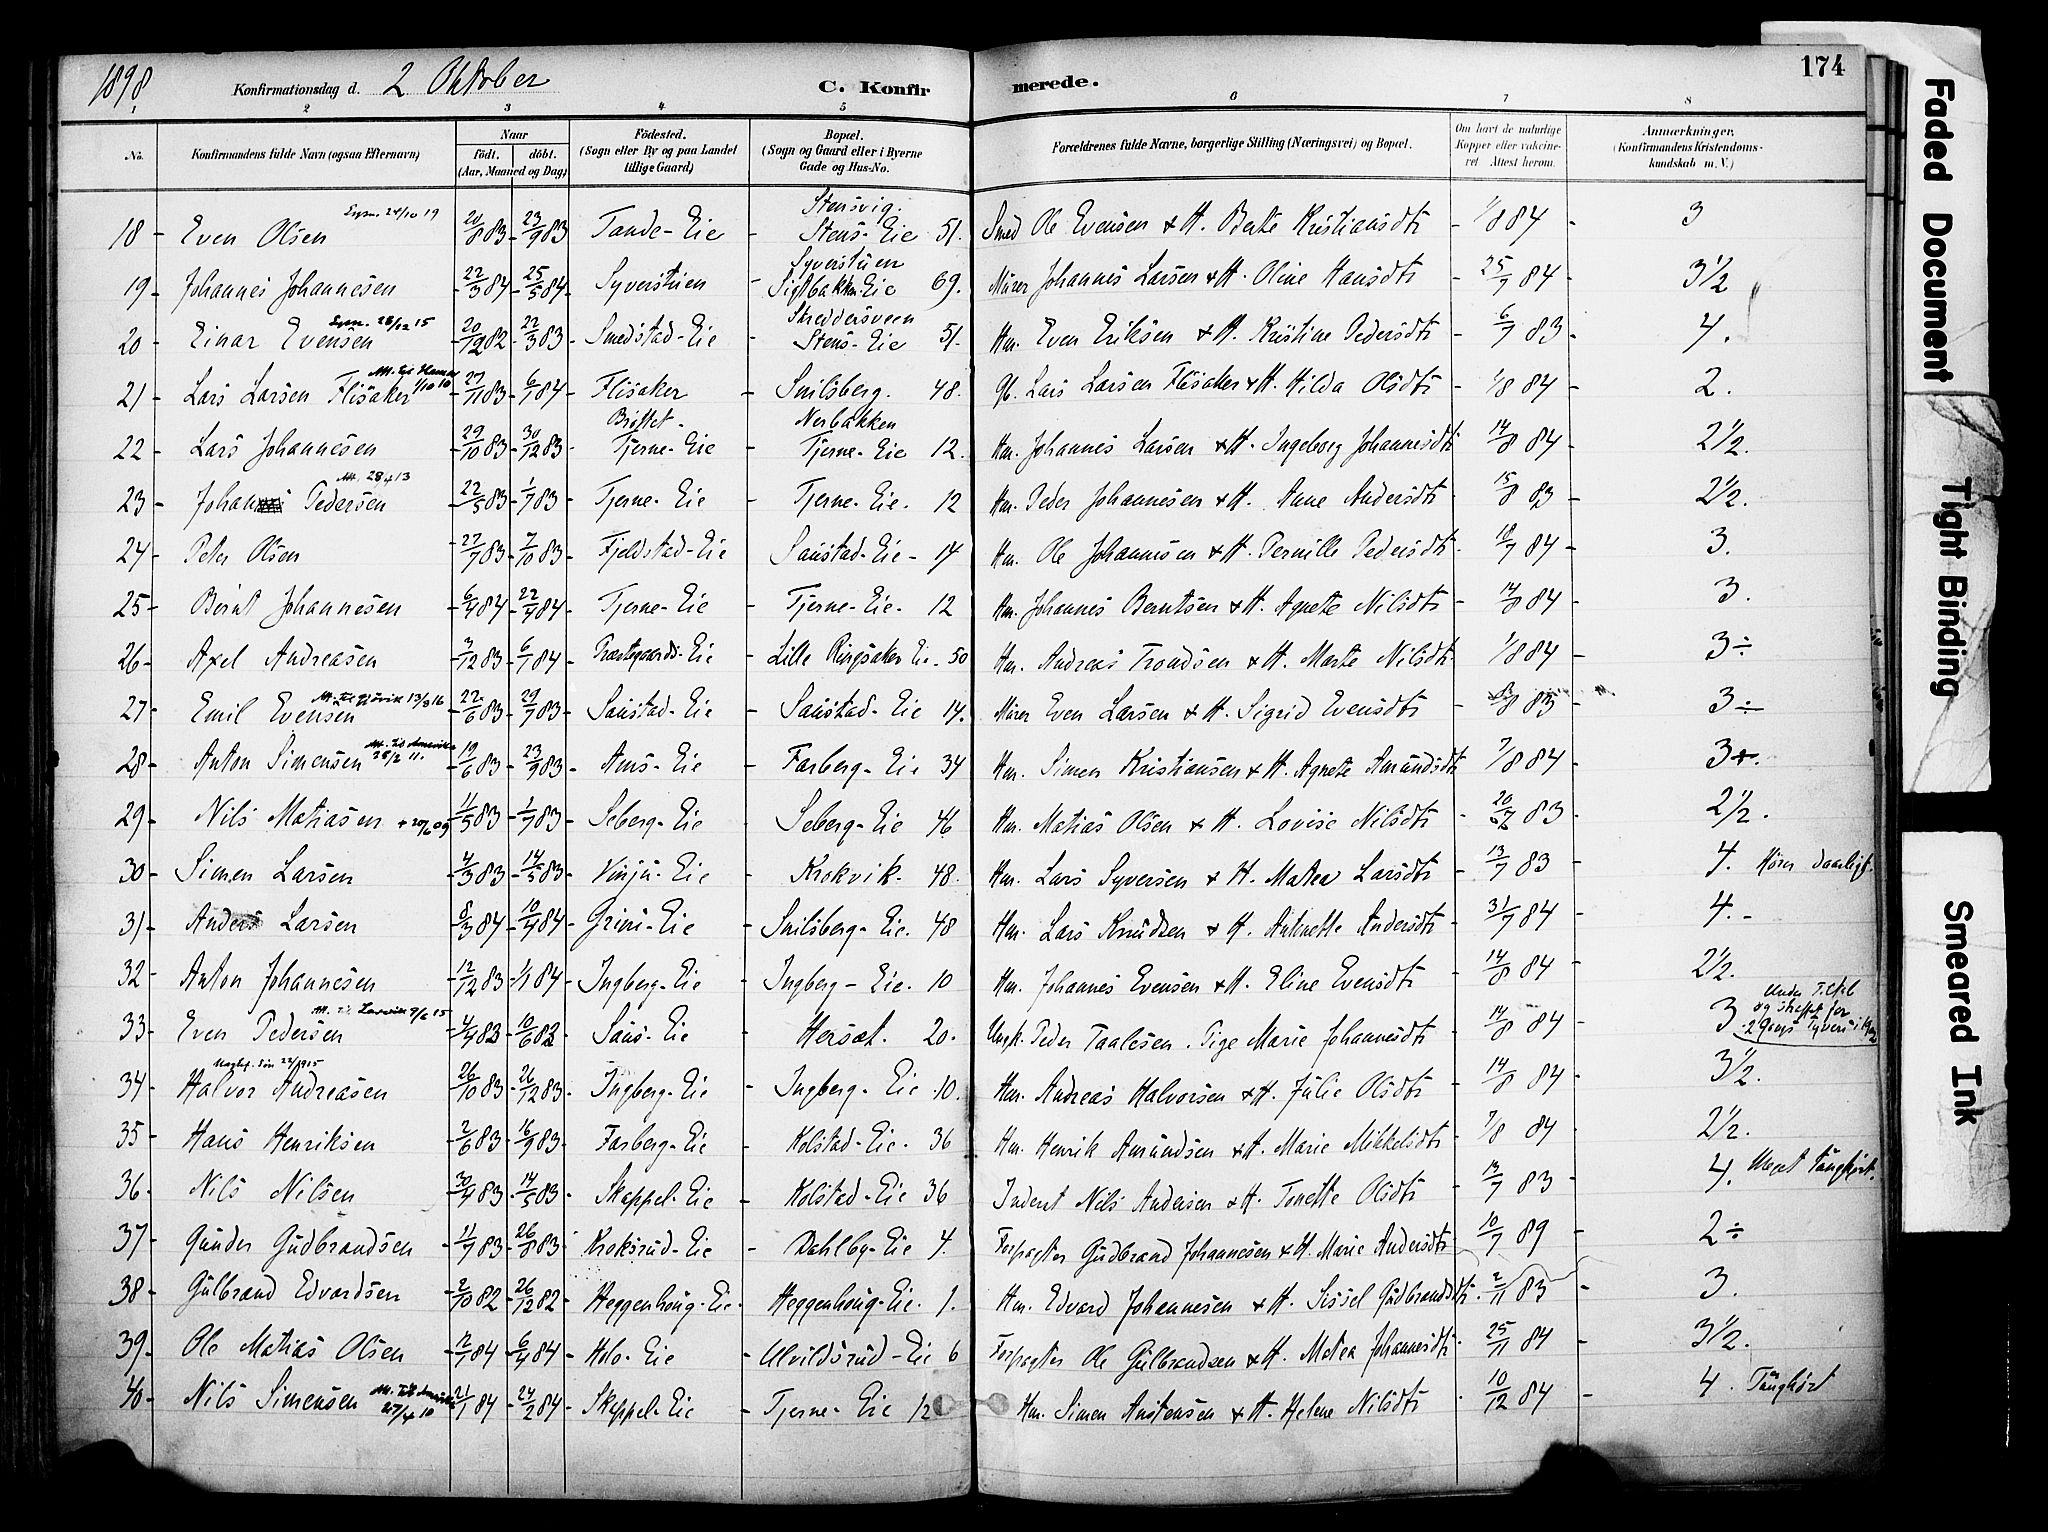 1898 Konfirmationsdag d. 2 Oktober C. Konfirmerede. 174
1 2 3 4 5 6 7 8
No. Konfirmandens fulde Navn (ogsaa Efternavn) Naar födt. döbt. (Aar, Maaned og Dag) Födested. (Sogn eller By og paa Landet tillige Gaard) Bopæl. (Sogn og Gaard eller i Byerne Gade og Hus-No. Forældrenes fulde Navne, borgerlige Stilling (Næringsvei) og Bopæl. Om havt de naturlige Kopper eller vakcineret Attest herom. Anmærkninger. (Konfirmandens Kristendomskundskab m. V.)
18 - Even Olsen 20/8 83 - 23/9 83 Tande-Eie - Stensvig. Stens-Eie 51. Smed Ole Evensen & H. Berte Kristiansdtr - 1/8 84 - 3
19 - Johannes Johannesen - 22/3 84 - 25/5 84 - Syverstuen - Syverstuen Sigtbakken-Eie 69. Murer Johannes Larsen & H. Oline Hansdtr - 25/7 84 - 3½
20 - Einar Evensen 28/12 15 - 20/12 82 - 22/3 83 - Smedstad-Eie - Skreddersveen Stens-Eie 51. Hm. Even Eriksen & H. Kristine Pedersdtr - 6/7 83 - 4.
21 - Lars Larsen Flisaker 1/10 10 - 27/11 83 - 6/1 84 - Flisaker - Smilsberg. 48. Gb. Lars Larsen Flisaker & H. Hilda Olsdtr - 1/8 84 - 2.
22 - Lars Johannesen - 29/10 83 - 30/12 83 - Bröttet - Tjerne-Eie - Nerbakken Tjerne-Eie 12. Hm. Johannes Larsen & H. Ingeborg Johannesdtr 14/8 84 - 2½.
23 - Johan Pedersen 28/4 13 - 22/5 83 - 1/7 83 - Tjerne-Eie - Tjerne-Eie. 12 Hm. Peder Johannesen & H. Anne Andersdtr 15/8 83 - 2½.
24 - Peter Olsen - 27/7 83 - 7/10 83 - Fjeldstad-Eie - Saustad-Eie - 14 Hm. Ole Johannesen & H. Pernille Pedersdtr - 18/7 84 - 3.
25 - Bernt Johannesen - 6/4 84 - 22/4 84 - Tjerne-Eie - Tjerne-Eie. 12 Hm. Johannes Berntsen & H. Agnete Nilsdtr - 14/8 84 - 3.
26 - Axel Andreasen - 3/12 83 - 6/1 84 - Præstegaards-Eie - Lille Ringsaker Eie - 50 Hm. Andreas Trondsen & H. Marte Nilsdtr - 1/8 84 - 3÷
27 - Emil Evensen M. til Gjövik 13/3 16 - 22/6 83 - 29/7 83 - Saustad-Eie - Saustad-Eie 14. Murer Even Larsen & H. Sigrid Evensdtr - 83 - 3÷
28 - Anton Simensen M. til Amerika 28/2 11. - 19/6 83 - 23/9 83 - Ams-Eie - Farberg-Eie 34 Hm. Simen Kristiansen & H. Agnete Amundsdtr 7/8 84 - 3+.
29 - Nils Matiasen + 20/6 09 - 11/5 83 - 1/7 83 - Seberg-Eie - Seberg-Eie 46 Hm. Matias Olsen & H. Lovise Nilsdtr - 83 - 2½.
30 - Simen Larsen - 4/3 83 - 14/5 83 - Vinju-Eie - Krokvik. 48. Hm. Lars Syversen & H. Matea Larsdtr - 13/7 83 - 4. Hører daarligt.
31 - Anders Larsen - 8/3 84 - 10/4 84 - Grini-Eie - Smilsberg-Eie. 48 Hm. Lars Knudsen & H. Antonette Andersdtr - 31/7 84 - 4. -
32 - Anton Johannesen - 12/12 83 - 1/1 84 - Ingberg-Eie - Ingberg-Eie. 10 Hm. Johannes Evensen & H. Eline Evensdtr - 14/8 84 - 2½.
33 - Even Pedersen M. til Larvik 7/6 15 - 4/4 83 - 10/6 83 - Saus-Eie - Hersæt. 20. Ungk. Peder Taalesen. Pige Marie Johannesdtr - 14/8 84 - 3 Under Tiltal og straffet for 2 Gangs Tyveri
34 - Halvor Andreasen 26/10 83 - 26/12 83 - Ingberg-Eie - Ingberg-Eie 10. Hm. Andreas Halvorsen & H. Julie Olsdtr - 14/8 84 - 3½.
35 - Hans Henriksen - 2/6 83 - 16/9 83 - Farberg-Eie - Kolstad-Eie. 36 Hm. Henrik Amundsen & H. Marie Mikkelsdtr - 7/8 84 - 2½.
36 - Nils Nilsen - 30/4 83 - 14/5 83 - Skappel-Eie - Kolstad-Eie 36 Inderst Nils Andersen & H. Tonette Olsdtr - 13/7 83 - 4. Meget tunghørt.
37 - Gunder Gudbrandsen - 11/7 83 - 26/8 83 - Kroksrud-Eie - Dahlby-Eie 4. Forpagter Gudbrand Johannesen & H. Marie Andersdtr 10/7 89 - 2÷
38 - Gulbrand Edvardsen - 2/10 82 - 26/12 82 - Heggenhoug-Eie - Heggenhoug-Eie. 1. Hm. Edvard Johannesen & H. Sissel Gudbrandsdtr. 2/11 83 - 3.
39 - Ole Matias Olsen - 12/1 84 - 6/4 84 - Holo-Eie - Ulvildsrud-Eie 6 Forpagter Ole Gulbrandsen & H. Matea Johannesdtr 25/11 84 - 3½.
40 - Nils Simensen M. til Amerika 27/4 10 - 21/1 84 - 24/2 84 - Skappel-Eie - Tjerne-Eie 12 Hm. Simen Anstensen & H. Helene Nilsdtr 10/12 84 - 4. Tunghørt
Faded Document
Tight Binding
Smeared Ink